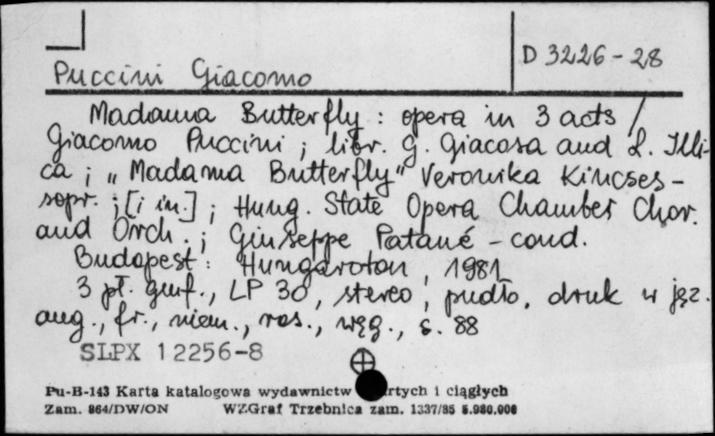 D 3226-28
Puccini Giacomo
Madama Butterfly : opera in 3 acts /
Giacomo Puccini ; libr. G. Giacosa and L. Illi-
ca ; „Madama Butterfly" Veronika Kincses-
sopr. ; [i in.] ; Hung. State Opera Chamber Chor.
and Orch. ; Giuseppe Patané - cond.
Budapest : Hungaroton, 1981
3 pł. gmf., LP 30, stereo ; pudło, druk w jęz.
ang., fr., niem., ros., węg., s. 88
SLPX 12256-8
Pu-B-143 Karta katalogowa wydawnictw rtych i ciągłych
Zam. 864/DW/ON WZGraf Trzebnica zam. 1337/85 5.980.000